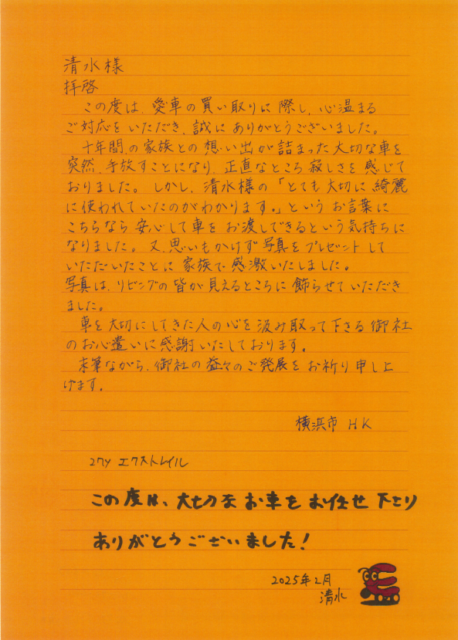 清水様
拝啓
この度は、愛車の買い取りに際し、心温まる
ご対応をいただき、誠にありがとうございました。
十年間の家族との想い出が詰まった大切な車を
突然、手放すことになり、正直なところ寂しさを感じて
おりました。しかし、清水様の「とても大切に綺麗
に使われていたのがわかります。」というお言葉に
こちらなら安心して車をお渡しできるという気持ちに
なりました。又、思いもかけず写真をプレゼントして
いただいたことに家族で感激いたしました。
写真は、リビングの皆が見えるところに飾らせていただき
ました。
車を大切にしてきた人の心を汲み取って下さる御社
のお心遣いに感謝いたしております。
末筆ながら、御社の益々のご発展をお祈り申し上
げます。
横浜市 HK
27Y エクストレイル
この度は、大切なお車をお任せ下さり
ありがとうございました!
2025年2月
清水